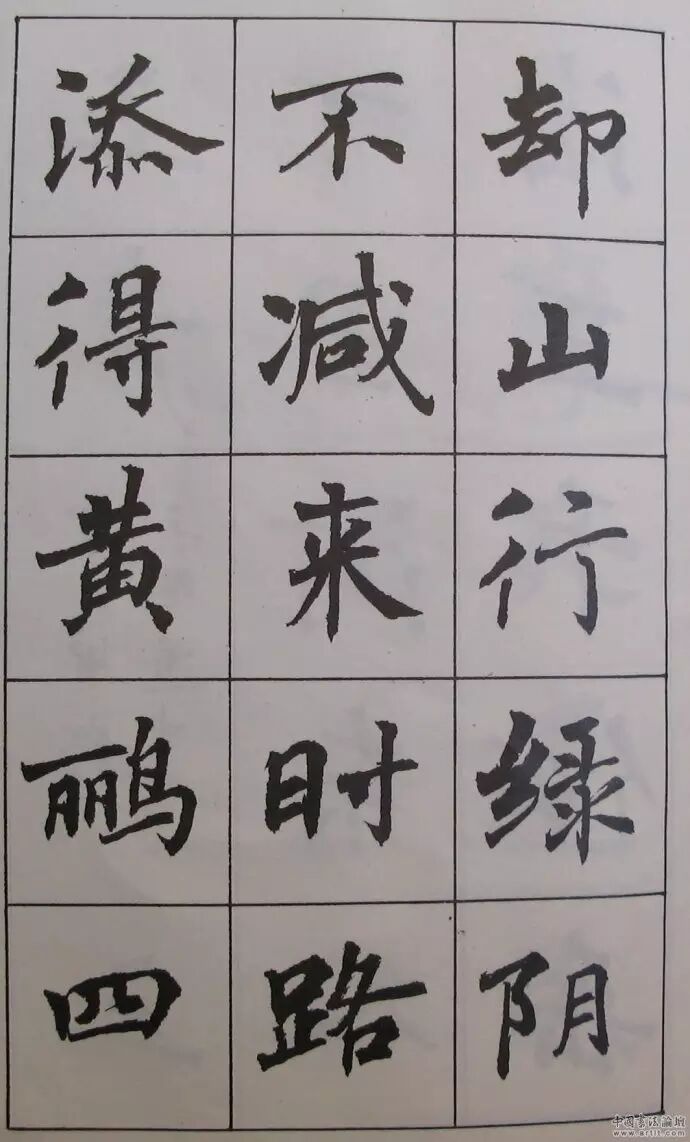 却山行绿阴
不减来时路
添得黄鹂四
中国书法论坛
www.artit.com